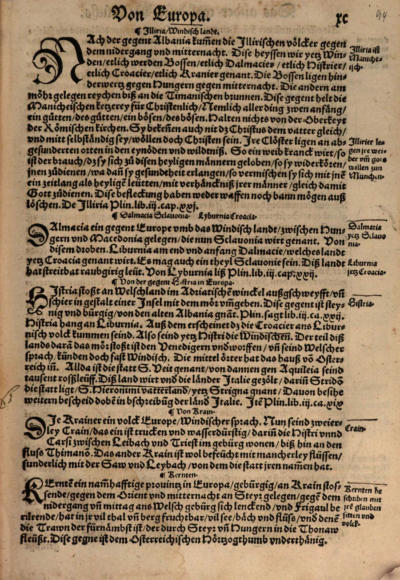 Von Europa. xc
¶ Illiria/Windisch lande.
NAch der gegent Albania kum̃en die Illirischen völcker gegen
dem nidergang vnd mitternacht. Dise heyssen wir yetz Win
den/etlich werden Bossen/etlich Dalmacier/etlich Histrier/
etlich Croacier/etlich Kranier genant. Die Bossen ligen hin
derwertz gegen Hungern gegen mitternacht. Die andern am
möhr gelegen reychen biß an die Timanischen brunnen. Dise gegent helt die
Manicheischen ketzerey für Christenlich/Nemlich aller ding zwen anfäng/
ein gůtten/des gůtten/ein bösen/des bösen. Halten nichts von der Oberkeyt
der Römischen kirchen. Sy bekeñen auch nit dz Christus dem vatter gleich/
vnd mitt selbständig sey/wöllen doch Christen sein. Jre Clöster ligen an ab=
gesunderten otten in den eynöden vnd wildtniß. So ein weib kranck wirt/so
ist der brauch/dz sy sich zů disen heyligen männern geloben/so sy widerkören/
jnen zůdienen/wa dañ sy gesundtheit erlangen/so vermischen sy sich mit jnẽ
ein zeitlang als heyligẽ leütten/mit verhäncknüß jrer männer/gleich damit
Gott zůdienen. Dise befleckung haben weder waffen noch bann mögen auß
löschen. De Illiria Plin.lib.iij.cap.xxj.
Illiria ist
Manichei=
isch.
Dalmacia Sclauonia. Lyburnia Croacia.
DAlmacia ein gegent Europe vmb das Windisch landt/zwischen Hun=
gern vnd Macedonia gelegen/die nun Sclauonia wirt genant. Von
disem droben. Liburnia am end vnd anfang Dalmacie/welches landt
yetz Croacia genant wirt. Es mag auch ein theyl Sclauonie sein. Diß landt
hat streitbat raubgirig leüt. Von Lyburnia liß Plin.lib.iij.cap.xxij.
Dalmacia
yetz Sclauo
nia.
Liburnia
yetz Croacia.
Von der gegent Histria in Europa.
HIstria stoßt an Welschland im Adriatischẽ winckel außschweyfft/vñ
schier in gestalt einer Insel mit dem mör vm̃geben. Dise gegent ist stey=
nig vnd bürgig/von den alten Albania gnãt. Plin.sagt lib.iij.ca.xxij.
Histria hang an Liburnia. Auß dem erscheinet dz die Croacier ans Libur=
nisch volck kummen seind. Also seind yetz Histri die Windischẽ. Der teil diß
lands darã das mör stoßt ist den Venedigern vnderworffen/vñ seind Welscher
sprach/künden doch fast Windisch. Die mittel örter hat das hauß võ Oster=
reich iñ. Allda ist die statt S. Veit genant/von dannen gen Aquileia seind
tausent roßleüff. Diß land wirt vnd die länder Italie gezölt/dariñ Stridõ
die statt ligt/S. Hieronimi vatterland/yetz Strigna gnant/Dauon besihe
weitern bescheid dobẽ in bschreibũg der länd Italie. Itẽ Plin.lib.iij.ca.xix
Histria.
¶ Von Krain.
DIe Krainer ein volck Europe/Windischer sprach. Nun seind zweierley
Crain/das ein ist trucken vnd wasserdürstig/dariñ die Histri vnnd
Carsi zwischen Leibach vnd Triest im gebürg wonen/biß hin an den
fluss Thimanõ. Das ander Krain ist wol befeücht mit mancherley flüssen/
sunderlich mit der Saw vnd Leybach/von dem die statt jren namen hat.
Crain.
¶ Kernten.
KErntẽ ein namhafftige prouintz in Europa/gebürgig/an Krain stos=
sende/gegen dem Orient vnd mitternacht an Steyr gelegen/gegẽ dem
nidergang vñ mittag ans Welsch gebürg sich lenckend/vnd
die Trawn der fürnämbst ist/der durch Steyr vñ Hungern in die Thonaw
fleüßt. Dise gegne ist dem Osterreichischen Hörtzogthumb vnderthänig.